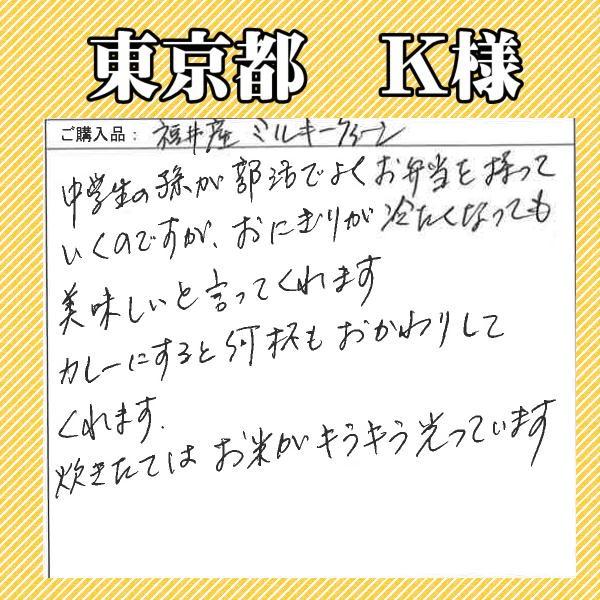 東京都 K様
ご購入品： 福井産 ミルキークイーン
中学生の孫が部活でよくお弁当を持って
いくのですが、おにぎりが冷たくなっても
美味しいと言ってくれます
カレーにすると何杯もおかわりして
くれます.
炊きたてはお米がキラキラ光っています